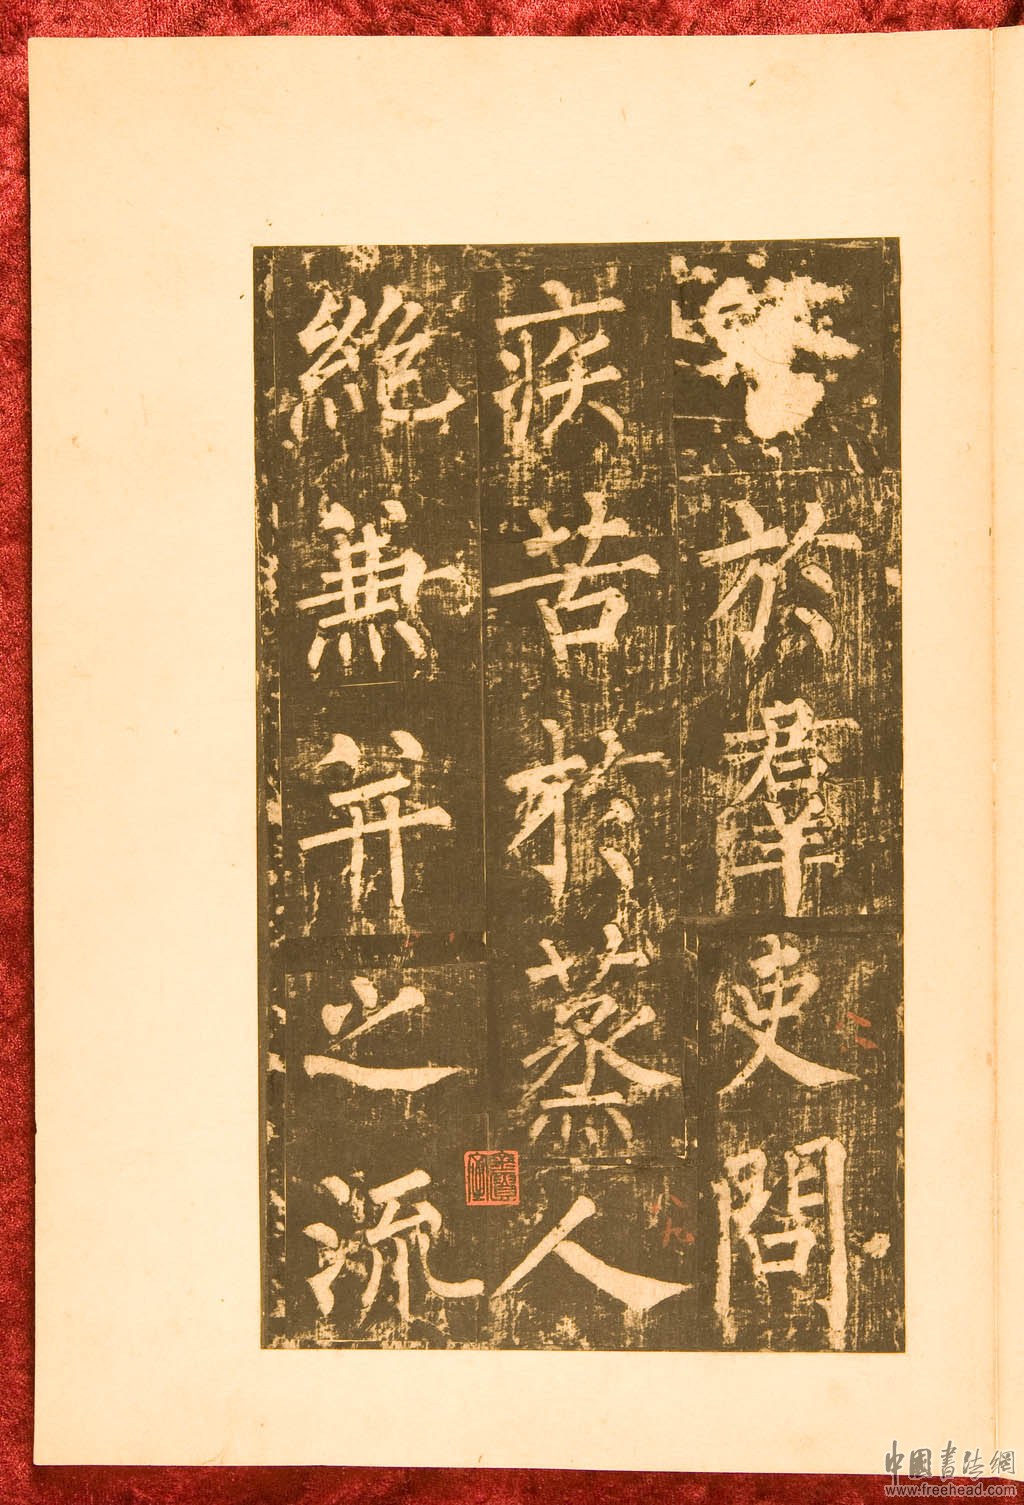 於羣吏問
疾苦於蒸人
絶兼并之流
中国書法網
www.freehead.com